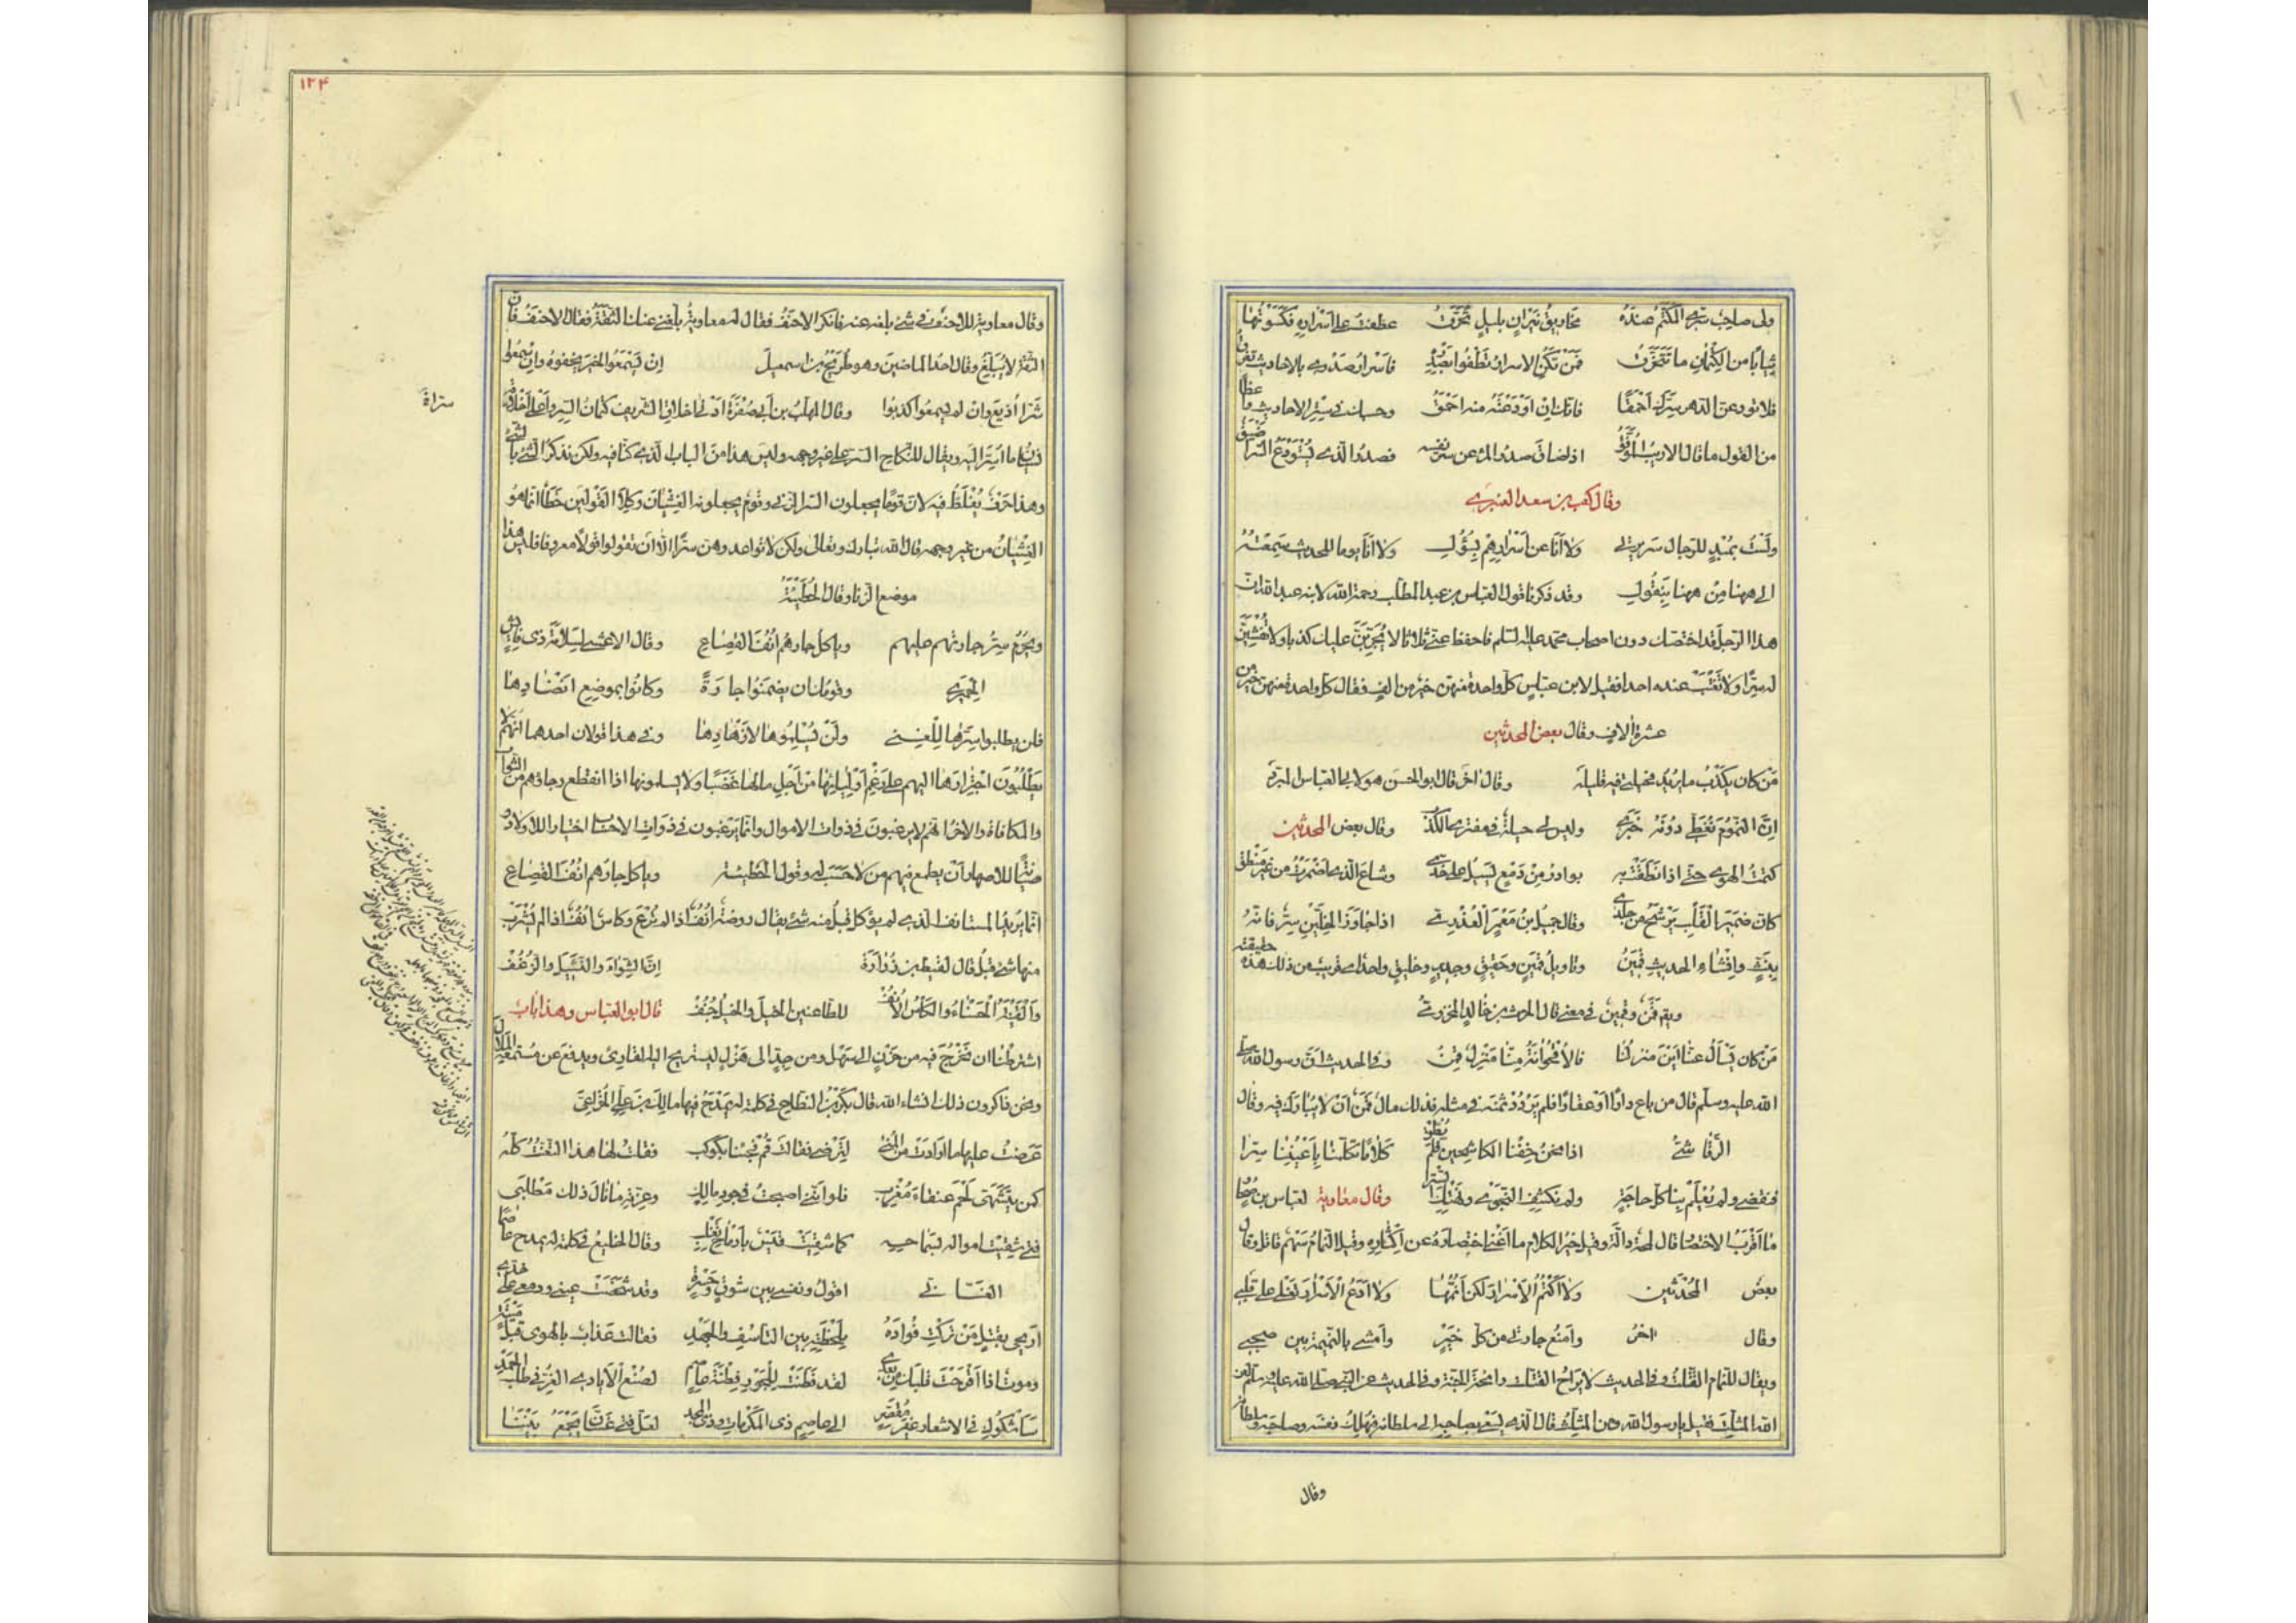 ولى صاحب سرى المكتم عنده مخاريق نيران بليل تحرق عطفت على اسراره فكسوتها
ثيابا من الكتمان ما تتخرق فمن تكن الاسرار تطفو بصدره فاسرار صدرى بالاحاديث تغرق
فلا تودعن الدهر سرك احمقا فانك ان اودعته منه احمق وحسبك فى ستر الاحاديث واعظا
من القول ما قال الاديب الموفق اذا ضاق صدر المرء عن سر نفسه فصدر الذى يستودع السر اضيق
وقال كعب بن سعد الغنوى
ولست بمبد للرجال سريرتى ولا انا عن اسرارهم بسؤول ولا انا يوما للحديث سمعته
الى ههنا من ههنا بنقول وقد ذكرنا قول العباس بن عبد المطلب رحمة الله لابنه عبد الله ان
هذا الرجل قد اختصك دون اصحاب محمد عليه السلم فاحفظ عنى ثلاثا لا يجربن عليك كذبا ولا تفشين
له سرا ولا تغتب عنده احدا فقيل لابن عباس كل واحدة منهن خير من الف فقال كل واحدة منهن خير من
عشرة الاف وقال بعض المحدثين
من كان يكذب ما يريد فحيلتى فيه قليله وقال اخر قال ابو الحسن هو لابى العباس المبرد
ان النموم تغطى دونه خبرى وليس لى حيلة فى مفترى الكذب وقال بعض المحدثين
كتمت الهوى حتى اذا نطقت به بوادر من دمع تسيل على خدى وشاع الذى اضمرت من غير منطق
كان ضمير القلب يرشح من جلدى وقال جميل بن معمر العذرى اذا جاوز الخلين سر فانه
بنث وافشاء الحديث قمين وتاويل قمين وحقيق وجدير وخليق واحد اى قريب من ذلك هذه حقيقته
ويقم قمن وقمين فى معنى قال الحرث بن خالد المخزومى
من كان يسأل عنا اين منزلنا فالاقحوانة منا منزل قمن وفى الحديث ان رسول الله صلى
الله عليه وسلم قال من باع دارا او عقارا فلم يردد ثمنه فى مثله فذلك مال قمن ان لا يبارك فيه وقال
الرقاشى اذا نحن خفنا الكاشحين فلم نطق كلاما تكلمنا باعيننا سرا
فنقضى ولم يعلم بنا كل حاجة ولم نكشف النجوى ولم نهتك السترا وقال معاوية لعباس بن صحار
ما اقرب الاختصار قال لمحة دالة وقيل خير الكلام ما اغنى اختصاره عن اكثاره وقيل النمام سهم قاتل وقال
بعض المحدثين ولا اكتم الاسرار لكن انمها ولا ادع الاسرار تغلى على قلبى
وقال اخر وامنع جارتى من كل خير وامشى بالنميمة بين صحبى
ويقال للنمام القتات وفى الحديث لا يراح القتات رائحة الجنة وفى الحديث عن النبى صلى الله عليه وسلم لعن
الله المثلث فقيل يا رسول الله ومن المثلث قال الذى يسعى بصاحبه الى سلطانه فيهلك نفسه وصاحبه وسلطانه
وقال
١٢۴
وقال معاوية للاحنف فى شئ بلغه عنه فانكر الاحنف فقال له معاوية بلغنى عنك الثقة فقال الاحنف ان
الثقة لا يبلغ وقال احد الماضين وهو طريح بن اسمعيل ان يسمعوا الخير يخفوه وان يسمعوا
شرا اذيع وان لم يسمعوا كذبوا وقال المهلب بن ابى صفرة ادنى اخلاق الشريف كتمان السر واعلى اخلاقه
نسيان ما اسر اليه ويقال للنكاح السر على غير وجهه وليس هذا من الباب الذى كنا فيه ولكن نذكر الشئ بالشئ
وهذا حرف يغلط فيه لان قوما يجعلون السر الزنى وقوم يجعلونه الغشيان وكلا القولين خطأ انما هو
الغشيان من غير وجهه قال الله تبارك وتعالى ولكن لا تواعدوهن سرا الا ان تقولوا قولا معروفا فليس هذا
موضع الزنا وقال الحطيئة
ويحرم سر جارتهم عليهم وياكل جارهم انف القصاع وقال الاعشى لسلامة ذى فايش
الحميرى وقوما ان يضمنوا جارة وكانوا بموضع انضادها
فلن يطلبوا سرها للغنى ولن يسلموها لازهادها وفى هذا قولان احدهما انهم لا
يطلبون اجترارها اليهم على رغم اوليائها من اجل مالها غصبا ولا يسلمونها اذا انقطع رجاؤهم من الثواب
والمكافاة والاخر انهم لا يرغبون فى ذوات الاموال وانما يرغبون فى ذوات الاحساب اختيارا للاولاد
وصيانة للاصهار ان يطمع فيهم من لا حسب له وقول الحطيئة وياكل جارهم انف القصاع
انما يريد المستانف الذى لم يؤكل قبل منه شئ يقال روضة انف اذا لم ترع وكاس انف اذا لم يشرب
منها شئ قبل قال لقيط بن زرارة ان الشواء والنشيل والرغف
والقينة الحسناء والكاس الانف للطاعنين الخيل والخيل جنف قال ابو العباس وهذا باب
اشترطنا ان نخرج فيه من حزن الى سهل ومن جد الى هزل ليستريح اليه القارئ ويدفع عن مستمعيه الملال
ونحن ذاكرون ذلك انشاء الله قال بكر بن النطاح فى كلمة له يمدح فيها مالك بن على الخزاعى
عرضت عليها ما ارادت من المنى لترضى فقالت قم فجئنا بكوكب فقلت لها هذا التعنت كله
كمن يتشهى لحم عنقاء مغرب فلو اننى اصبحت فى جود مالك وعزته ما نال ذلك مطلبى
فتى شقيت امواله بسماحه كما شقيت قيس بارماح تغلب وقال الخليع فى كلمة له يمدح عاصما
الغسانى اقول ونفسى بين شوق وحسرة وقد شخصت عينى ودمعى على خدى
اريحى بقتل من تركت فؤاده بلحظته بين التاسف والجهد فقالت عذاب بالهوى قبل ميتة
وموت اذا اقرحت قلبك من بعدى لقد فطنت للجور فطنة عاصم لصنع الايادى الغر فى طلب الحمد
ساشكوك فى الاشعار غير مقصر الى عاصم ذى المكرمات وذى المجد لعل فتى غسان يجمع بيننا
سراة